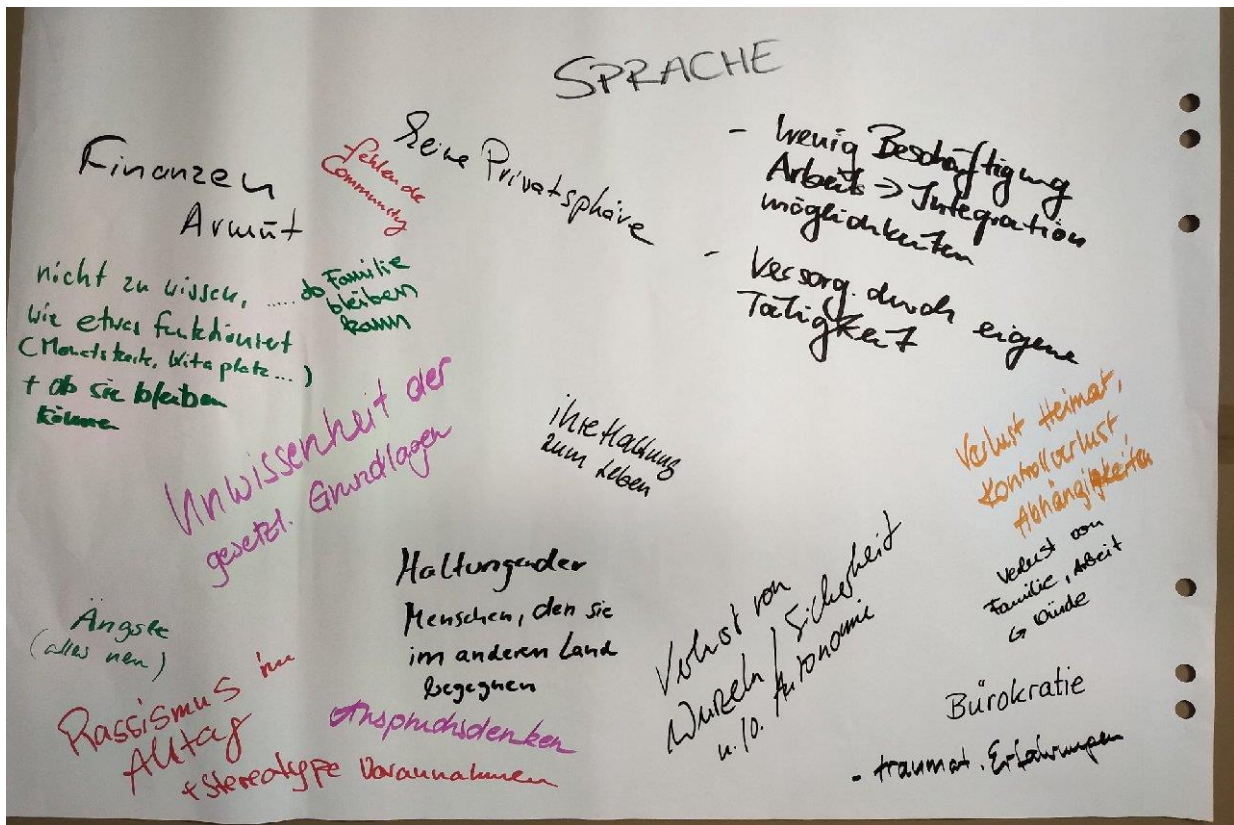 SPRACHE
Finanzen
Armut
fehlende
Community
Keine Privatsphäre
- wenig Beschäftigung
Arbeits -> Integration
möglichkeiten
- Versorg. durch eigene
Tätigkeit
nicht zu wissen, ..... ob Familie
bleiben
kann
wie etwas funktioniert
(Monatskarte, Kitaplatz...)
+ ob sie bleiben
können
Unwissenheit der
gesetzl. Grundlagen
ihre Haltung
zum Leben
Verlust Heimat,
Kontrollverlust,
Abhängigkeiten
Verlust von
Familie, Arbeit
↳ Würde
Haltung der
Menschen, den sie
im anderen Land
begegnen
Verlust von
Wurzeln / Sicherheit
u./o. Autonomie
Ängste
(alles neu)
Rassismus im
Alltag
+ stereotype Vorannahmen
Anspruchsdenken
Bürokratie
- traumat. Erfahrungen